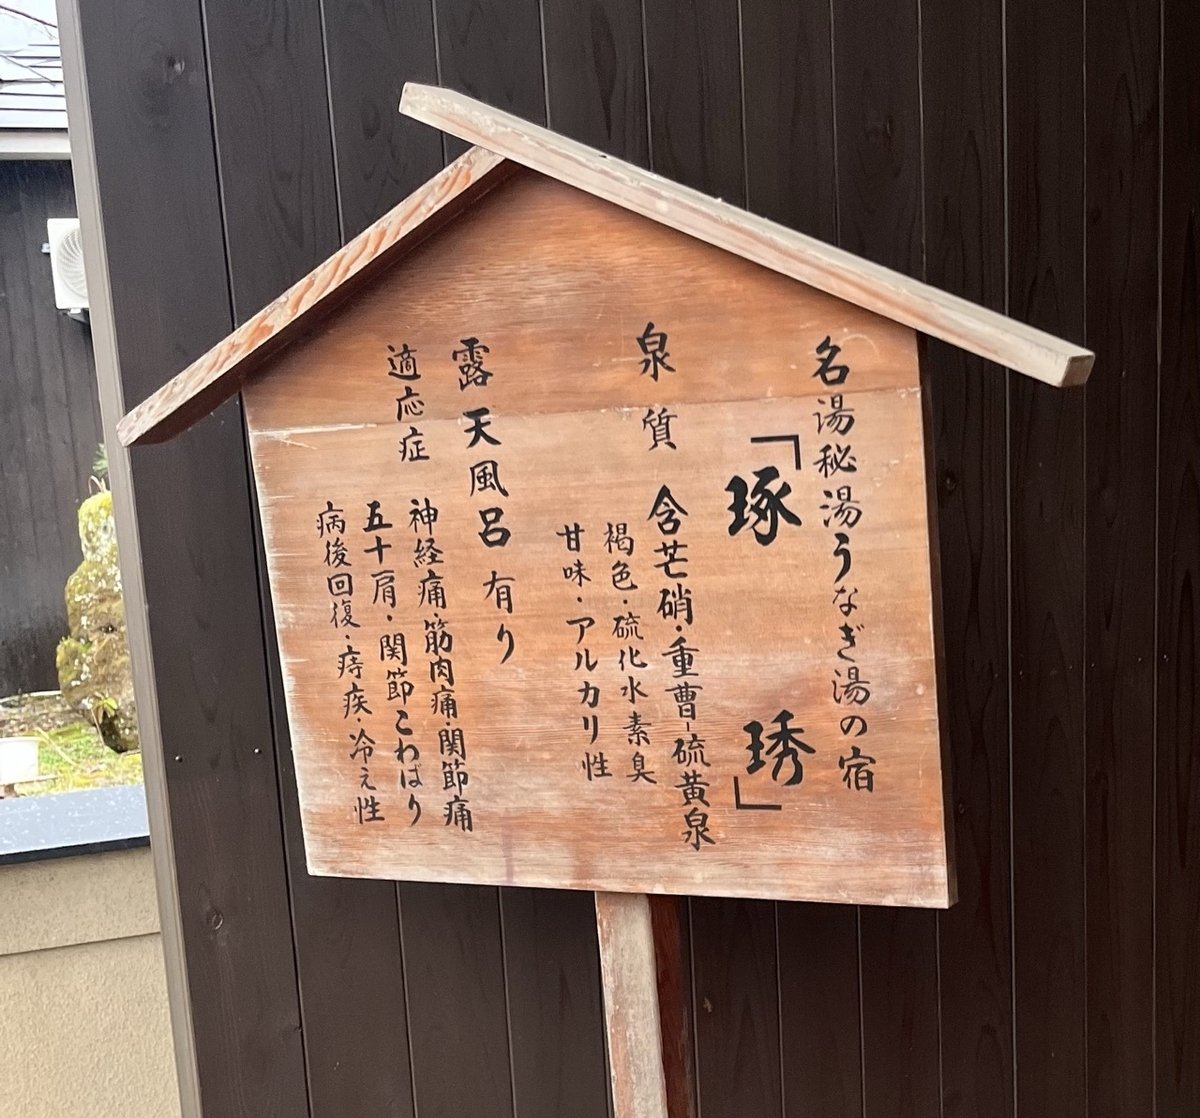 名湯秘湯うなぎ湯の宿
「琢 琇」
泉質 含芒硝・重曹-硫黄泉
褐色・硫化水素臭
甘味・アルカリ性
露天風呂 有り
適応症 神経痛・筋肉痛・関節痛
五十肩・関節こわばり
病後回復・痔疾・冷え性